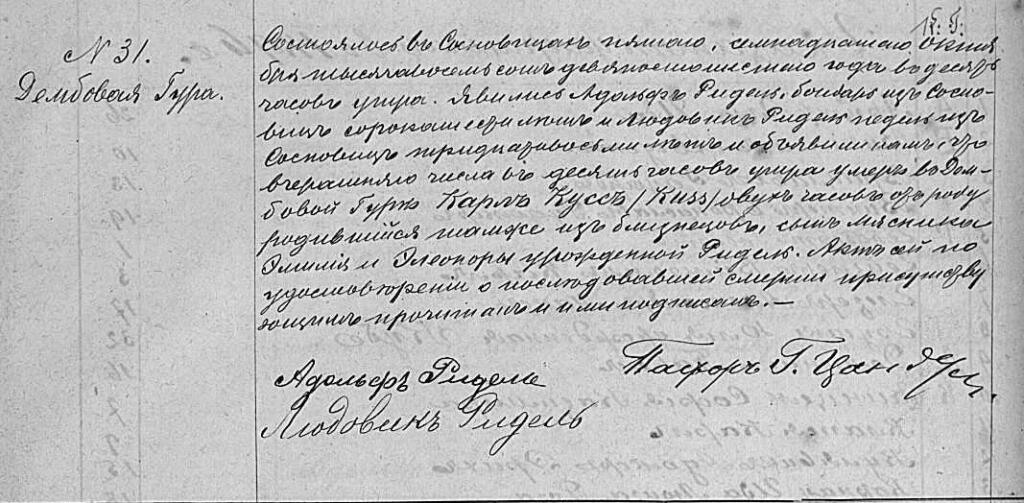 N 31.
Домбовая Гура.
Состоялось въ Сосновицахъ пятаго, семнадцатаго Октя
бря тысяча восемь сотъ девяносто шестаго года въ десять
часовъ утра. Явились Адольфъ Ридель, бондарь изъ Сосно-
вицъ сорока шести лѣтъ и Людовикъ Ридель изъ
Сосновицъ тридцати восьми лѣтъ и объявили намъ, что
вчерашняго числа въ десять часовъ утра умеръ въ Дом-
бовой Гурѣ Карлъ Куссъ /Kuss/ двухъ часовъ отъ роду
родившійся тамже изъ близнецовъ, сынъ мясника
Эмилія и Элеоноры урожденной Ридель. Актъ сей по
удостовѣреніи о послѣдовавшей смерти присутству
ющимъ прочитанъ и ими подписанъ. —
Адольфъ Ридель
Людовикъ Ридель
Пасторъ Г. Цандеръ.